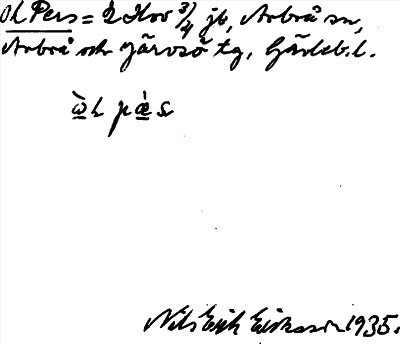 Ol Pers = 2 Nor 3/4 jb, Arbrå sn,
Arbrå och Järvsö tg, Gävleb. l.
Nils Erik Eriksson 1935.